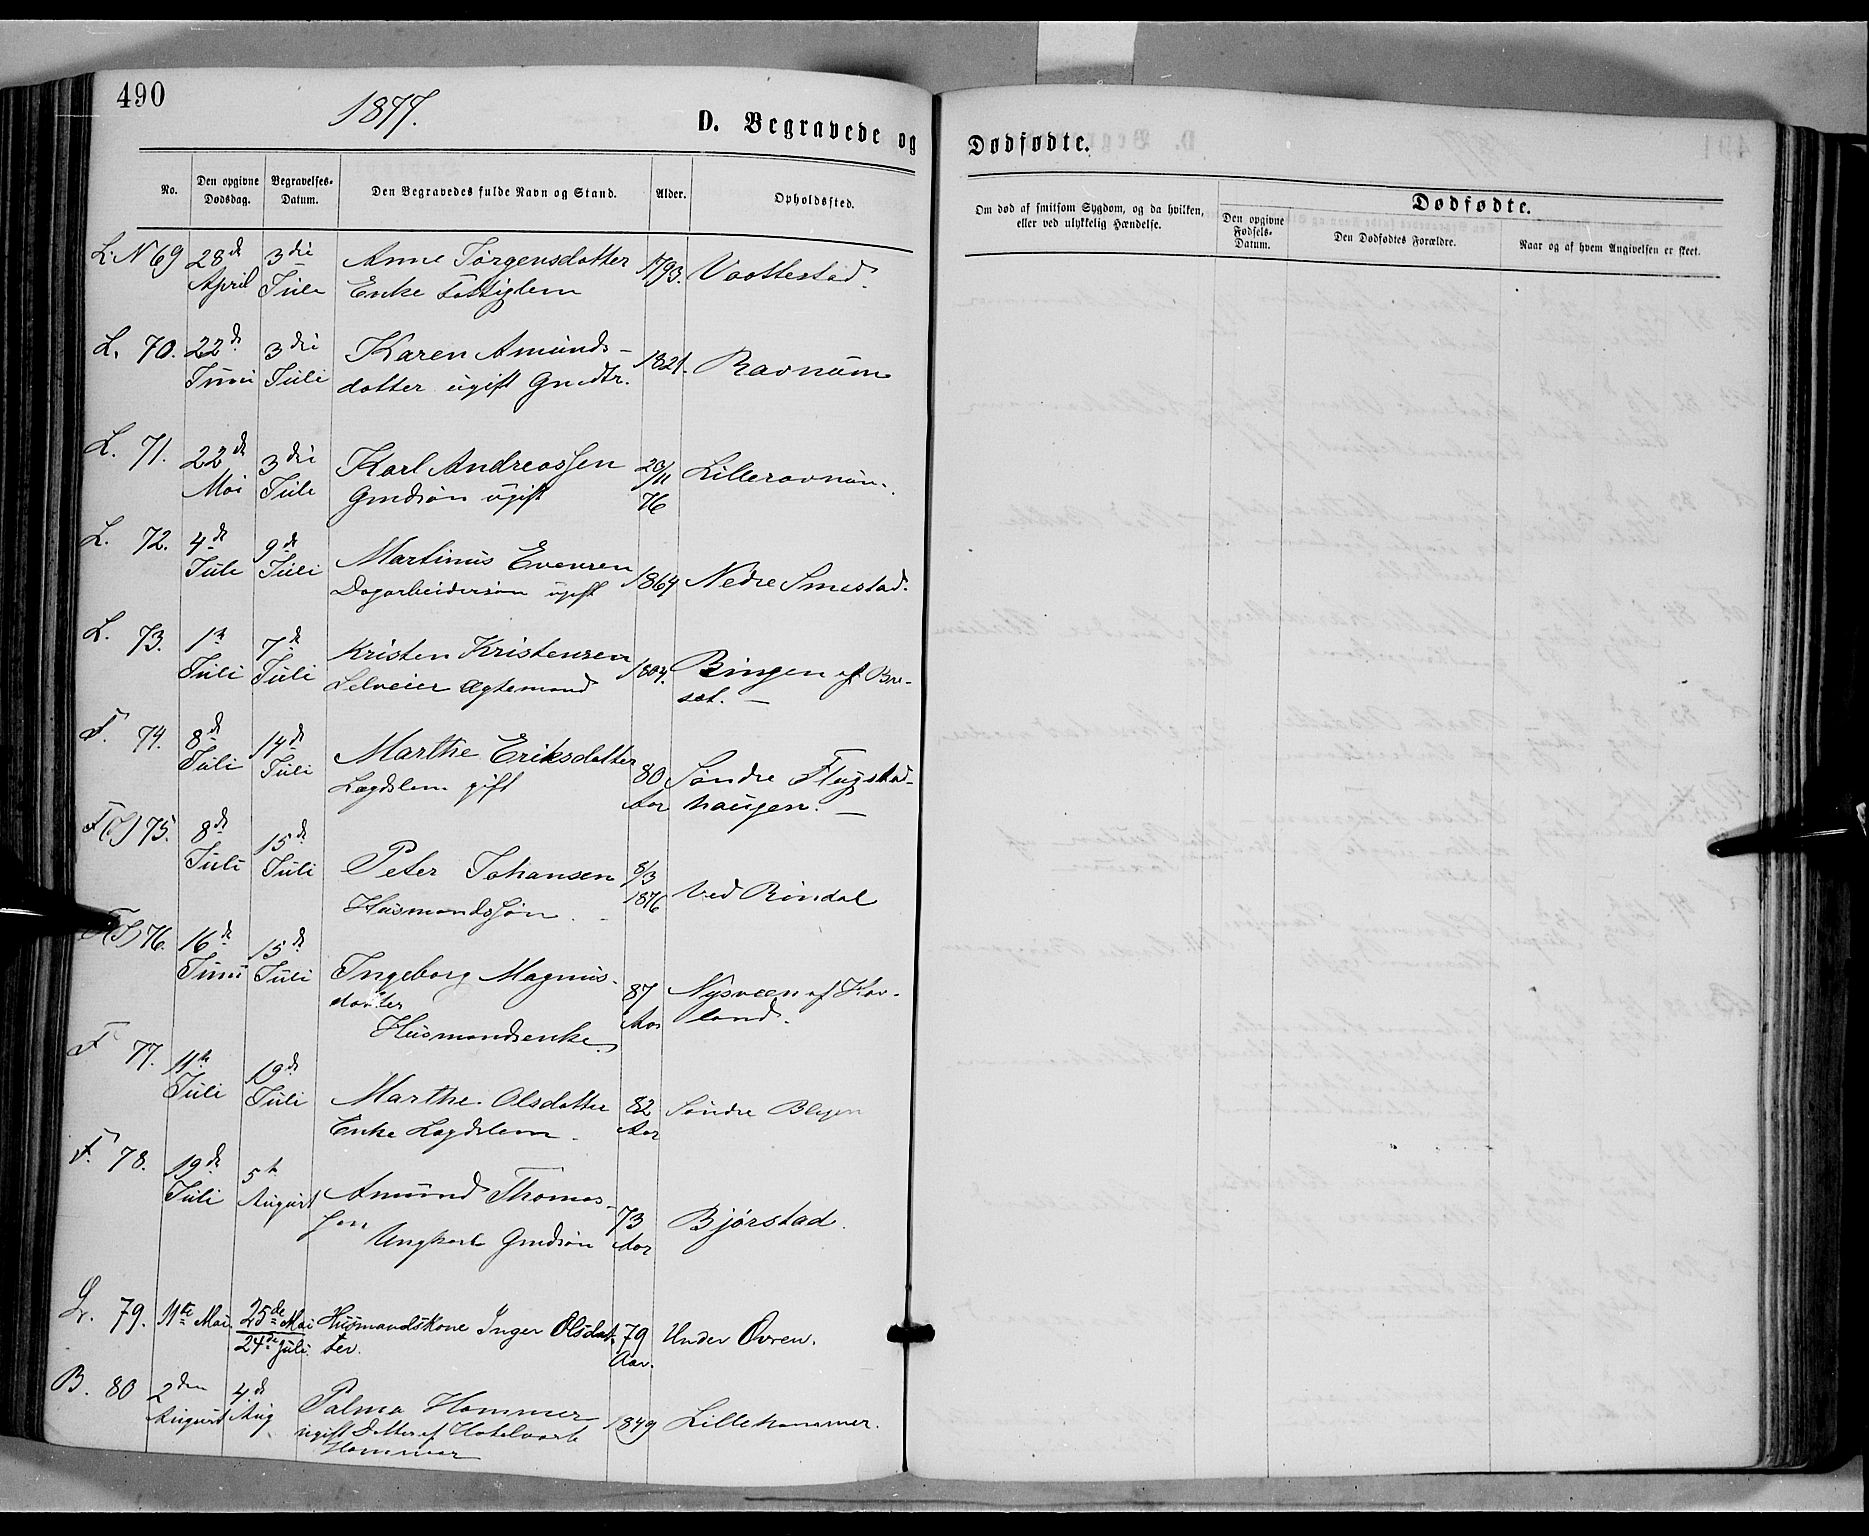 490
1877.
D. Begravede og
Dødfødte.
No.
Den opgivne Dødsdag.
Begravelses-Datum.
Den Begravedes fulde Navn og Stand.
Alder.
Opholdssted.
Om død af smitsom Sygdom, og da hvilken, eller ved ulykkelig Hændelse.
Dødfødte.
Den opgivne Fødsels-Datum.
Den Dødfødtes Forældre.
Naar og af hvem Angivelsen er skeet.
L. N 69 28d April 3die Juli Anne Jörgensdotter 1793. Vottestad.
Enke Fattiglem
L. 70. 22d Juni 3die Juli Karen Amunds- 1821. Ravnum
dotter ugift Gmdtr.
L. 71. 22d Mai 3die Juli Karl Andreassen 23/11 76 Lilleravnum.
Gmdsön ugift
L. 72. 4d Juli 9d Juli Martinus Evensen 1864 Nedre Smestad.
Dagarbeidersön ugift
L. 73. 1ste Juli 7d Juli Kristen Kristensen 1804. Bingen af Bre-
Selveier Ægtemand sæt. —
F. 74. 8d Juli 14d Juli Marthe Eriksdatter 80 Aar Söndre Flugstad-
Lægdslem gift haugen. —
F(S) 75. 8d Juli 15d Juli Peter Johansen 8/3 1876 Ved Rindal
Husmandssön
F(S) 76. 16d Juni 15d Juli Ingeborg Magnus- 87 Aar Nysveen af Hov-
datter land.
Husmandsenke
F 77. 11te Juli 19d Juli Marthe Olsdatter 82 Aar Söndre Bleken
Enke Lægdslem
F. 78. 19d Juli 5t August Amund Thomas- 73 Aar Bjørstad.
sen
Ungkarl Gmdsön
L. 79. 11te Mai 25de Mai 24de Juli. Husmandskone Inger Olsdat- 79 Aar. Under Ovren.
ter.
B. 80 2den August 4d Aug Palma Hammer 1849 Lillehammer.
ugift Datter af Hotelvært
Hammer